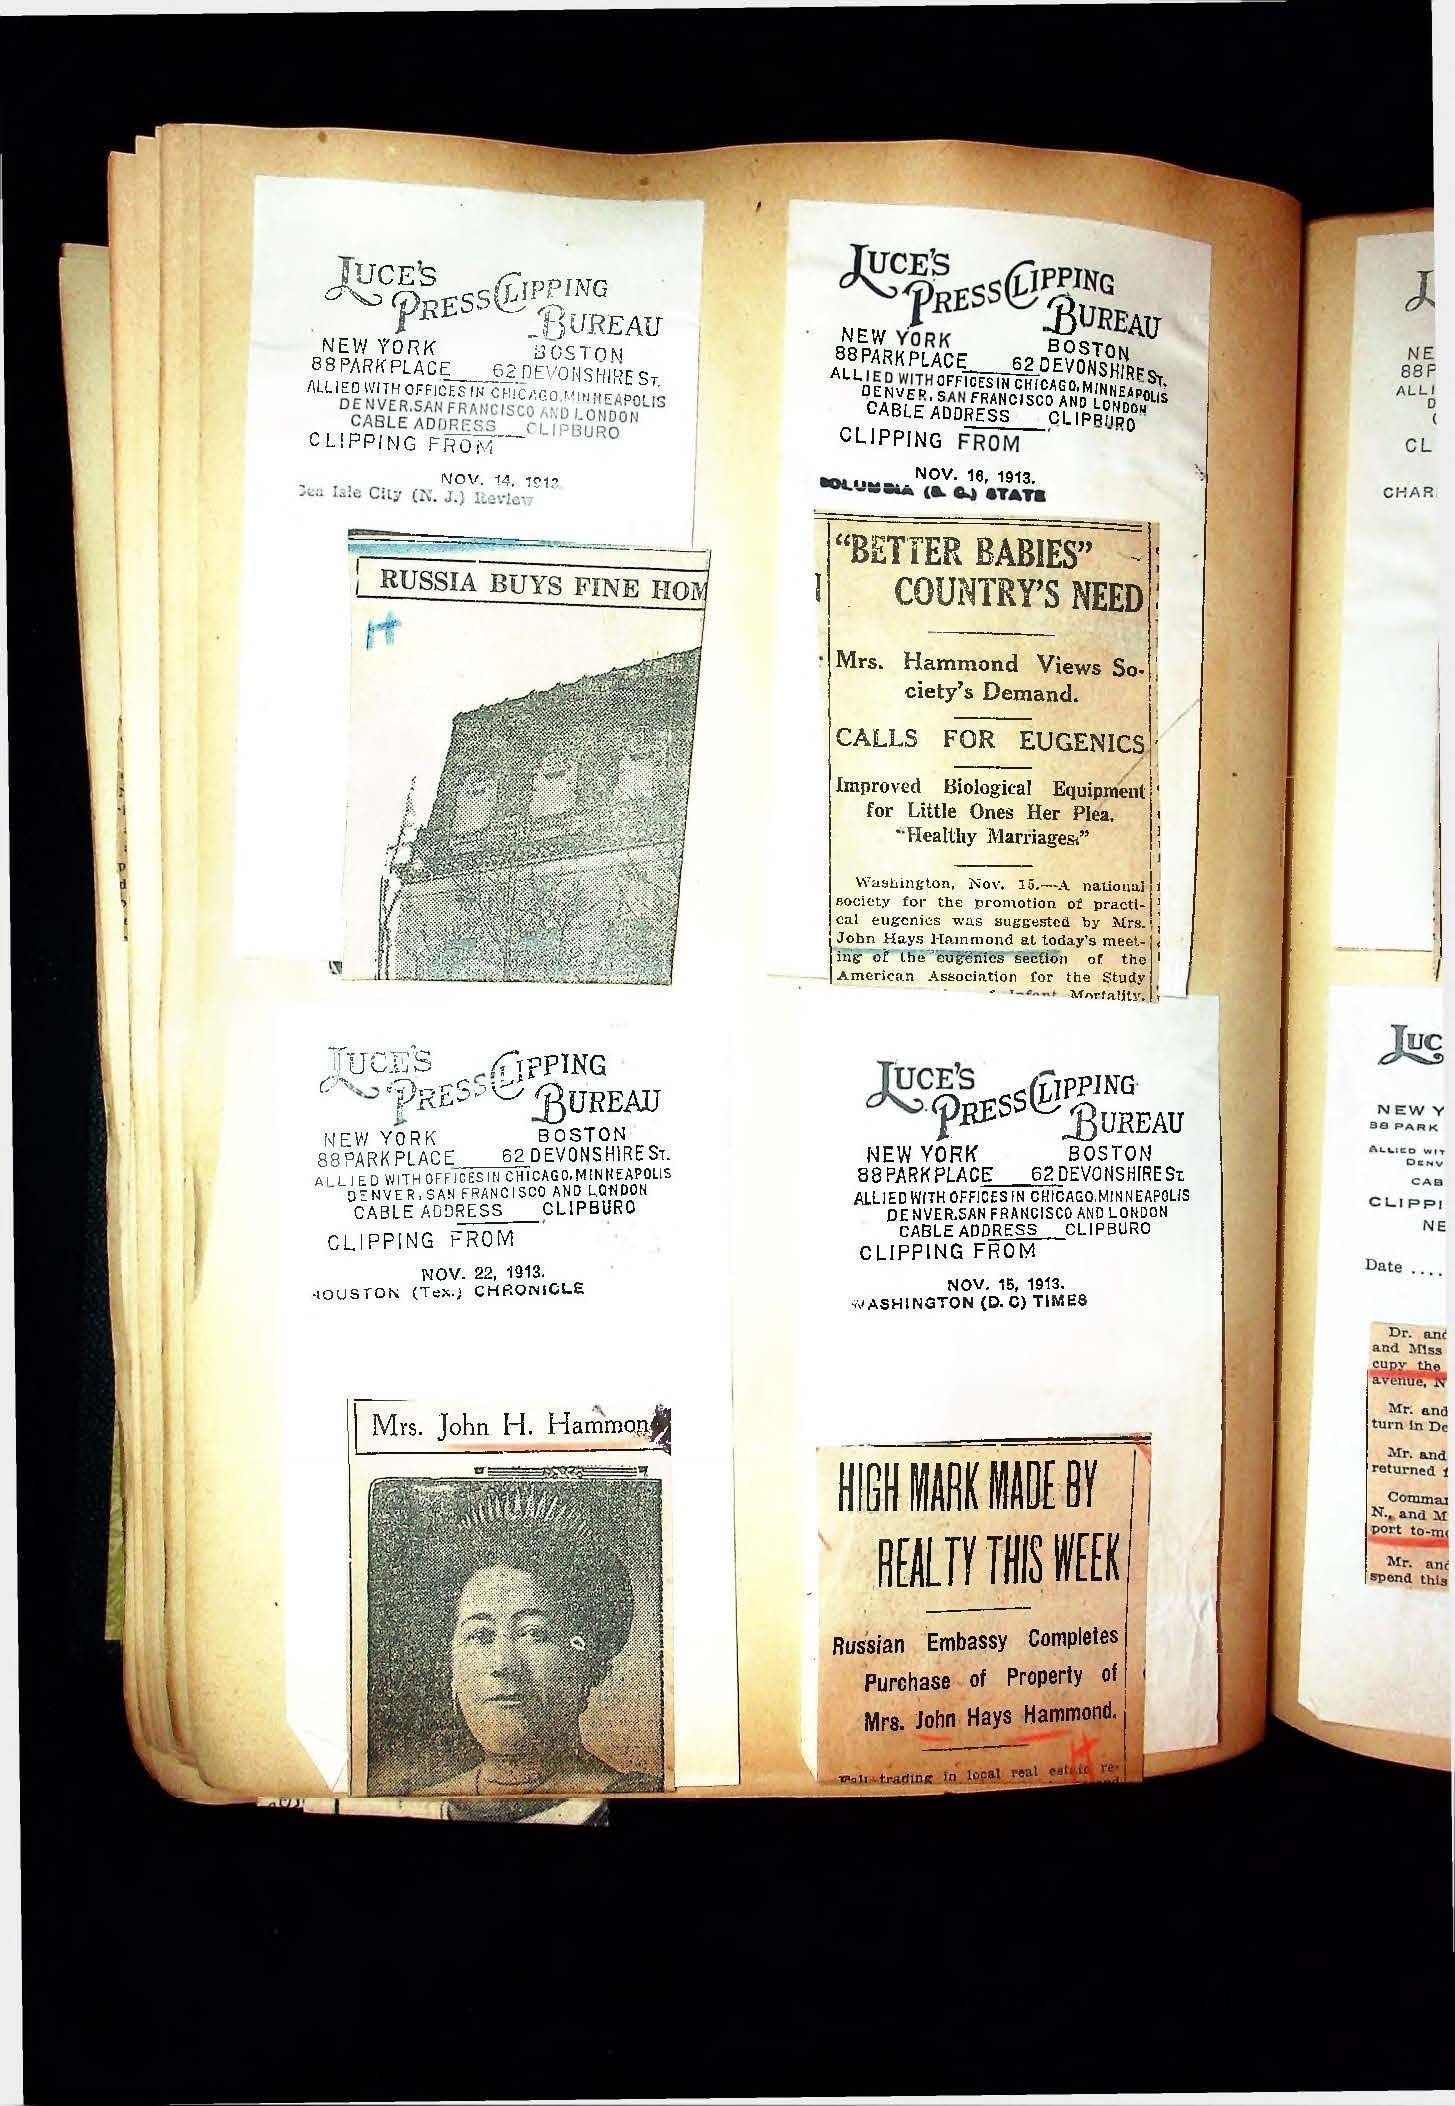 LUCE'S
PRESS CLIPPING
BUREAU
NEW YORK BOSTON
88 PARK PLACE 62 DEVONSHIRE ST.
ALLIED WITH OFFICES IN CHICAGO, MINNEAPOLIS
DENVER, SAN FRANCISCO AND LONDON
CABLE ADDRESS CLIPBURO
CLIPPING FROM
NOV. 14, 1913.
Sea Isle City (N. J.) Review
RUSSIA BUYS FINE HOM
H
LUCE'S
PRESS CLIPPING
BUREAU
NEW YORK BOSTON
88 PARK PLACE 62 DEVONSHIRE ST.
ALLIED WITH OFFICES IN CHICAGO, MINNEAPOLIS
DENVER, SAN FRANCISCO AND LONDON
CABLE ADDRESS CLIPBURO
CLIPPING FROM
NOV. 16, 1913.
COLUMBIA (S. C.) STATE
"BETTER BABIES"
COUNTRY'S NEED
Mrs. Hammond Views So-
ciety's Demand.
CALLS FOR EUGENICS
Improved Biological Equipment
for Little Ones Her Plea.
"Healthy Marriages."
Washington, Nov. 15.—A national
society for the promotion of practi-
cal eugenics was suggested by Mrs.
John Hays Hammond at today's meet-
ing of the eugenics section of the
American Association for the Study
Infant Mortality.
LUCE'S
PRESS CLIPPING
BUREAU
NEW YORK BOSTON
88 PARK PLACE 62 DEVONSHIRE ST.
ALLIED WITH OFFICES IN CHICAGO, MINNEAPOLIS
DENVER, SAN FRANCISCO AND LONDON
CABLE ADDRESS CLIPBURO
CLIPPING FROM
NOV. 22, 1913.
HOUSTON (Tex.) CHRONICLE
Mrs. John H. Hammon
LUCE'S
PRESS CLIPPING
BUREAU
NEW YORK BOSTON
88 PARK PLACE 62 DEVONSHIRE ST.
ALLIED WITH OFFICES IN CHICAGO, MINNEAPOLIS
DENVER, SAN FRANCISCO AND LONDON
CABLE ADDRESS CLIPBURO
CLIPPING FROM
NOV. 15, 1913.
WASHINGTON (D. C) TIMES
HIGH MARK MADE BY
REALTY THIS WEEK
Russian Embassy Completes
Purchase of Property of
Mrs. John Hays Hammond.
H
trading in local real estate re-
NE
88 P
ALLI
D
CL
CHAR
LUC
NEW Y
88 PARK
ALLIED WIT
DENV
CAB
CLIPPI
NE
Date ....
Dr. and
and Miss
cupy the
avenue, N
Mr. and
turn in De
Mr. and
returned
Comman
N., and M
port to-mo
Mr. and
spend this